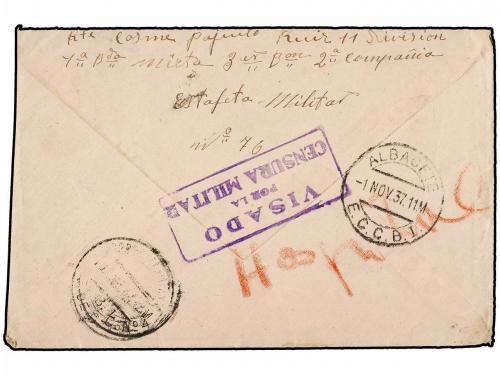 Rte Cosme Pajuelo Ruiz 11 Division
1ª Bda Mixta 3er Bon 2ª Compañia
Estafeta Militar
nº 76
VISADO
POR LA
CENSURA MILITAR
ALBACETE
-1 NOV 37.11M
E.C.C.B.I.